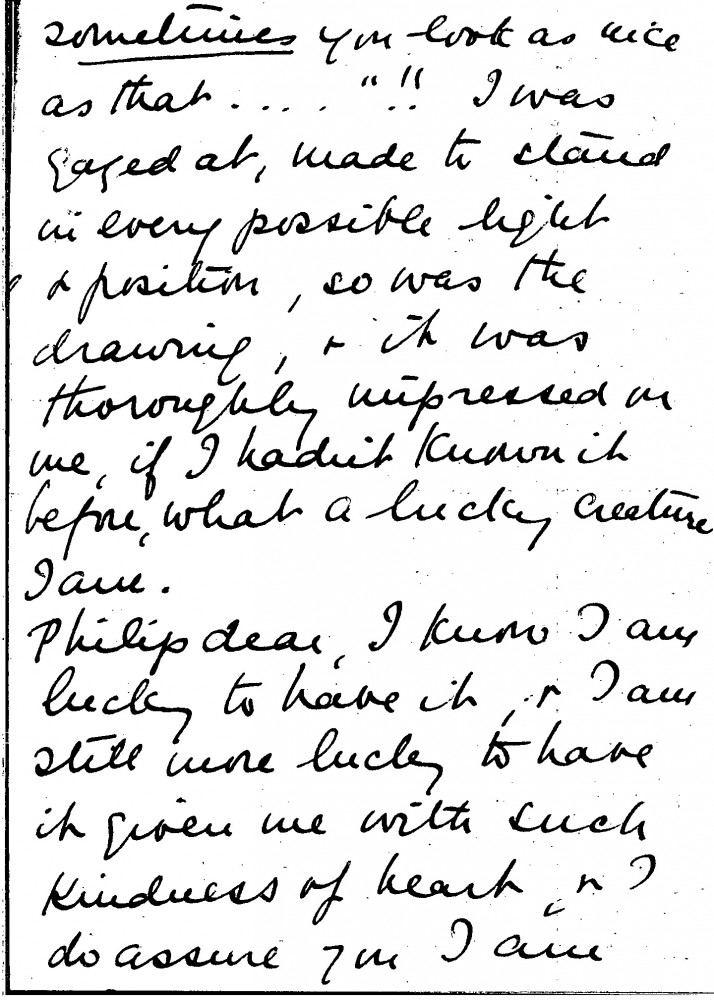 sometimes you look as nice
as that .... "!! I was
gazed at, made to stand
in every possible light
& position, so was the
drawing, & it was
thoroughly impressed on
me, if I hadn't known it
before, what a lucky creature
I am.
Philip dear, I know I am
lucky to have it, & I am
still more lucky to have
it given me with such
kindness of heart, & I
do assure you I am